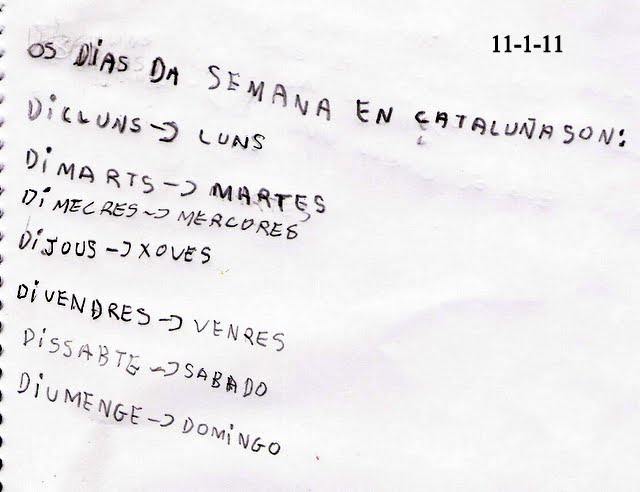 11-1-11
OS DIAS DA SEMANA EN CATALUÑA SON:
DICLUNS → LUNS
DIMARTS → MARTES
DIMECRES → MERCORES
DIJOUS → XOVES
DIVENDRES → VENRES
DISSABTE → SABADO
DIUMENGE → DOMINGO